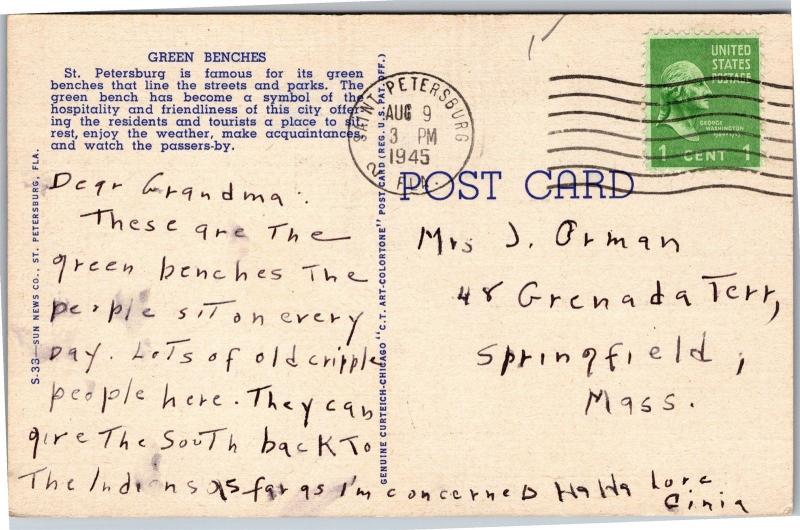 GREEN BENCHES
St. Petersburg is famous for its green
benches that line the streets and parks. The
green bench has become a symbol of the
hospitality and friendliness of this city offer-
ing the residents and tourists a place to sit,
rest, enjoy the weather, make acquaintances,
and watch the passers-by.
Dear Grandma.
These are The
green benches The
people sit on every
Day. Lots of old cripple
people here. They can
give The South back To
The Indians as far as I'm concerned Ha Ha Love
S-33—SUN NEWS CO., ST. PETERSBURG, FLA.
GENUINE CURTEICH-CHICAGO "C.T. ART-COLORTONE" POST CARD (REG. U.S. PAT. OFF.)
SAINT PETERSBURG
AUG 9
3 PM
1945
2 FLA.
UNITED
STATES
POSTAGE
GEORGE
WASHINGTON
1 CENT 1
POST CARD
Mrs J. Orman
48 Grenada Terr,
Springfield,
Mass.